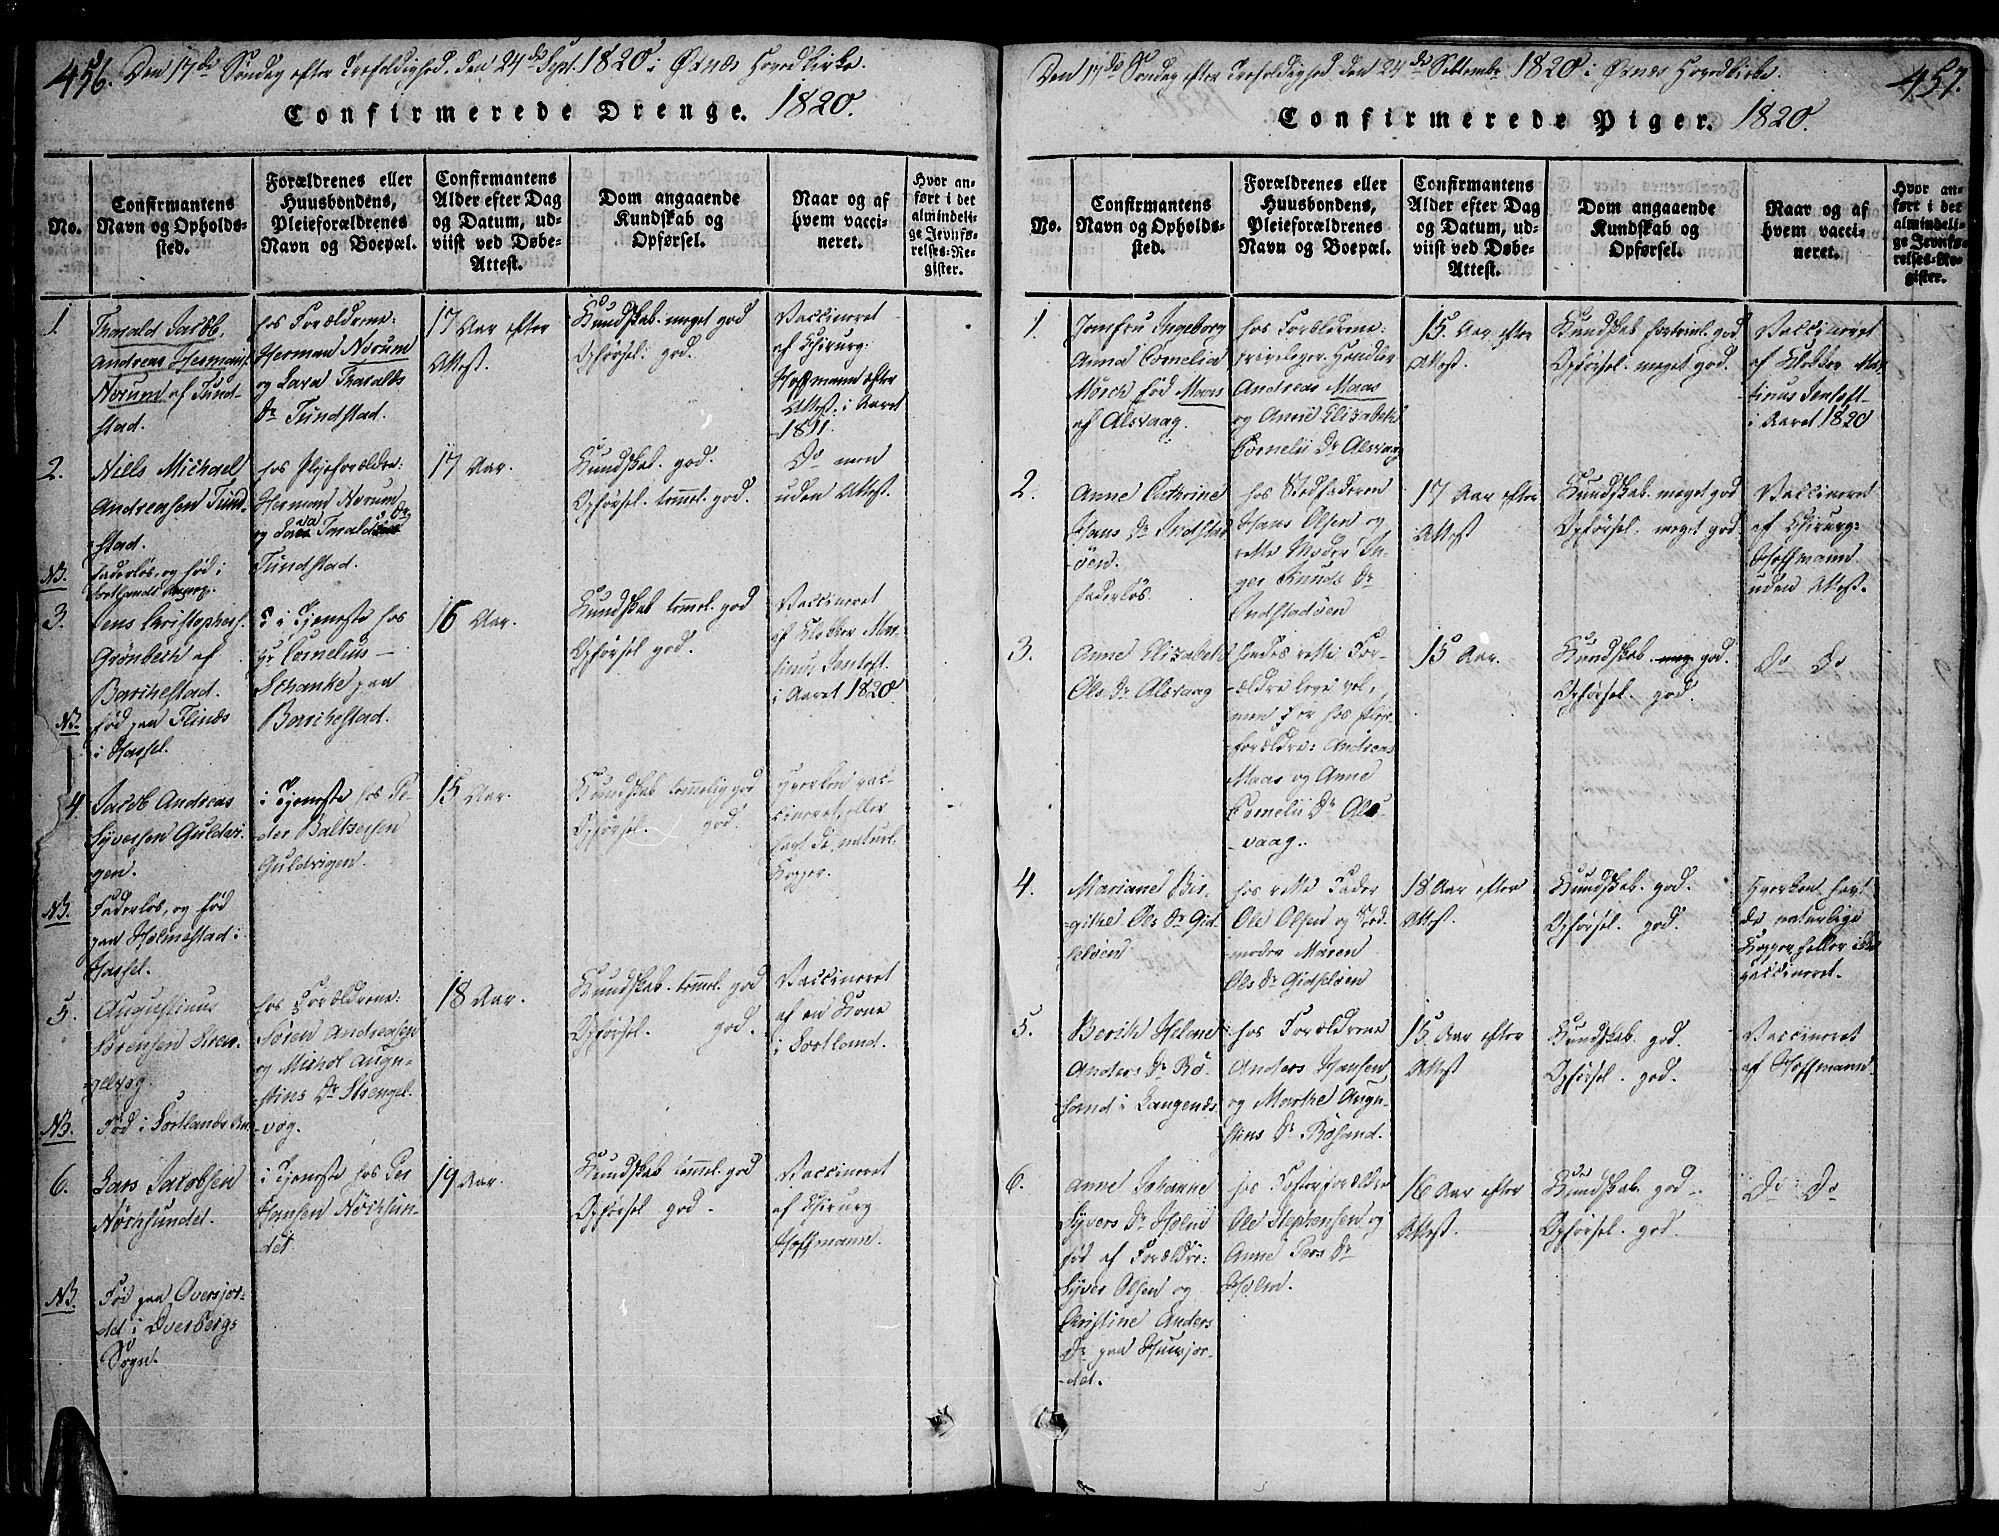 456. Den 17de Søndag efter Trefoldighed, den 24de Sept. 1820 i Øxnæs Hovedkirke.
Confirmerede Drenge. 1820.
No.
Confirmantens
Navn og Opholds-
sted.
Forældrenes eller
Huusbondens,
Pleieforældrenes
Navn og Boepæl.
Confirmantens
Alder efter Dag
og Datum, ud-
viist ved Døbe-
Attest.
Dom angaaende
Kundskab og
Opførsel.
Naar og af
hvem vacci-
neret.
Hvor an-
ført i det
almindeli-
ge Jevnfø-
relses-Re-
gister.
1.
Tharald Jacob
Andreas Hermans.
Norum af Tund-
stad.
hos Forældrene:
Herman Norum
og Lava Tharalds
Dr Tundstad.
17 Aar efter
Attest.
Kundskab. meget god
Opførsel: god.
Vaccineret
af Chirurg:
Hoffmann efter
Attest i Aaret
1811.
2.
Niels Michael
Andreasen Tund-
stad.
NB.
faderløs, og fød i
Sortlands
hos Plejeforældre:
Herman Norum
og Lava Tharalds Dr
Tundstad.
17 Aar.
Kundskab. god.
Opførsel temmel. god.
Do men
uden Attest.
3.
Jens Christophers.
Grønbech af
Barchestad.
NB.
fød paa Flinæs
i Hassel.
i Tjeneste hos
Hr Cornelius
Schanke paa
Barchestad.
16 Aar.
Kundskab temmel. god
Opførsel god.
Vaccineret
af Klokker Mar-
tinus Jentoft
i Aaret 1820
4.
Jacob Andreas
Syversen Guldvi-
gen.
NB.
Faderløs, og fød
paa Holmestad i
Hassel.
i Tjeneste hos Pe-
der Baltzersen
Guldvigen.
15 Aar.
Kundskab temmelig god
Opførsel. god.
hverken vac-
cineret, eller
havt de naturl.
Kopper.
5.
Augustinus
Sørensen Stren-
gelvog.
NB.
Fød i Sortlands
hos Forældrene:
Søren Andreasen
og Michol Augu-
stins Dr Strengel-
vog.
18 Aar.
Kundskab. temmel. god
Opførsel. god.
Vaccineret
af en Kone
i Sortland.
6.
Lars Jacobsen
Nøchsundet.
NB.
Fød paa Oversjor-
det i Overbergs
Sogn.
i Tjeneste hos Per
Hansen Nøchsun-
det
19 Aar.
Kundskab temmel. god
Opførsel god.
Vaccineret
af Chirurg
Hoffmann.
Den 17de Søndag efter Trefoldighed den 24de Septembr 1820 i Øxnæs Hovedkirke. 457.
Confirmerede Piger. 1820.
No.
Confirmantens
Navn og Opholds-
sted.
Forældrenes eller
Huusbondens,
Pleieforældrenes
Navn og Boepæl.
Confirmantens
Alder efter Dag
og Datum, ud-
viist ved Døbe-
Attest.
Dom angaaende
Kundskab og
Opførsel.
Naar og af
hvem vacci-
neret.
Hvor an-
ført i det
almindeli-
ge Jevnfø-
relses-Re-
gister.
1.
Jomfru Ingeborg
Anna Cornelia
Mørch fød Maas
af Alsvaag.
hos Forældrene:
privileger. Handler
Andreas Maas
og Anne Elisabeth
Cornelii Dr Alsvaag
15. Aar efter
Attest.
Kundskab god
Opførsel. meget god.
Vaccineret
af Klokker Mar-
tinus Jentoft
i Aaret 1820
2.
Anne Cathrine
Hans Dr Indstad-
øen.
faderløs.
hos Stedfaderen
Hans Olsen og
rette Moder In-
ger Knuds Dr
Indstadøen
17 Aar efter
Attest
Kundskab. meget god
Opførsel. meget god
Vaccineret
af Chirurg:
Hoffmann
uden Attest.
3.
Anne Elisabeth
Ols Dr Alsvaag
hendes rette For-
ældre leve vel,
men er hos Plej-
forældre: Andreas
Maas og Anne
Cornelii Dr Als
-vaag.
15 Aar.
Kundskab. god.
Opførsel. god
Do Do
4.
Mariane Bir-
githe Ols Dr Gid-
seløen
hos rette Fader
Ole Olsen og Sted-
moder Maren
Ols Dr Gidseløen
18 Aar efter
Attest.
Kundskab. god.
Opførsel. god.
Hverken havt
de naturlige
Kopper heller
vaccineret.
5.
Berith Helene
Anders Dr Rø-
sand i Langenæs.
hos Forældrene
Anders Hansen
og Marthe Augu-
stins Dr Røsand.
15. Aar efter
Attest
Kundskab. god.
Opførsel. god.
Vaccineret
af Hoffmann
6.
Anne Johanne
Syvers Dr Holm
fød af Forældre:
Syver Olsen og
Christine Anders
Dr paa
-det.
hos Fosterforældre
Ole Stephensen og
Anne Pers Dr
Holm.
16 Aar efter
Attest.
Kundskab. god.
Opførsel. god.
Do Do